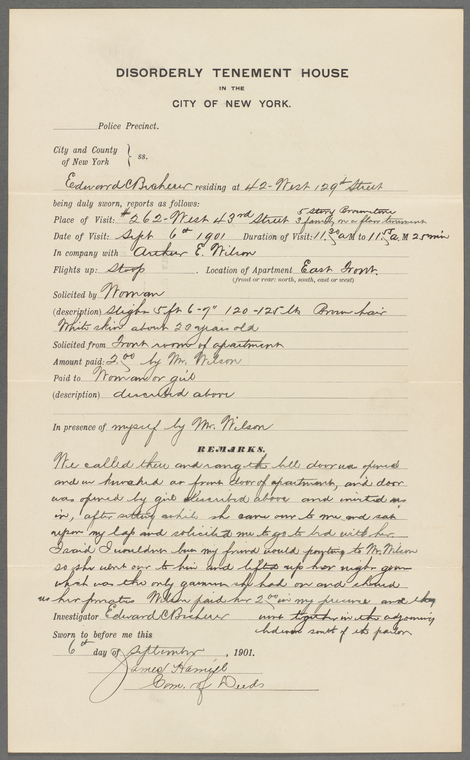 DISORDERLY TENEMENT HOUSE
IN THE
CITY OF NEW YORK.
Police Precinct.
City and County
of New York } ss.
Edward C Bicherer residing at 42-West 129th Street
being duly sworn, reports as follows:
5 story Brownstone
Place of Visit: #262-West 43rd Street 3 family on a floor tenement
Date of Visit: Sept 6th 1901 Duration of Visit: 11.30 a M to 11.55 a. M 25 min
In company with Arthur E. Wilson
Flights up: Stoop . Location of Apartment East Front.
(front or rear: north, south, east or west)
Solicited by Woman
(description) Slight 5 ft 6-7" 120-125 lbs Brown hair
White skin about 20 years old
Solicited from Front room of apartment
Amount paid: 2.00 by Mr. Wilson
Paid to Woman or girl
(description) described above
In presence of myself by Mr. Wilson
REMARKS.
We called there and rang the bell door was opened
and we knocked at front door of apartment, and door
was opened by girl described above and invited us
in, after sitting awhile she came over to me and sat
upon my lap and solicited me to go to bed with her
I said I wouldn't but my friend would pointing to Mr. Wilson
so she went over to him and lifted up her night gown
which was the only garment she had on and showed
us her privates Wilson paid her 2.00 in my presence and they
Investigator Edward C Bicherer went together in the adjoining
Sworn to before me this bedroom south of the parlor.
6th day of September , 1901.
James Hamill
Com. of Deeds